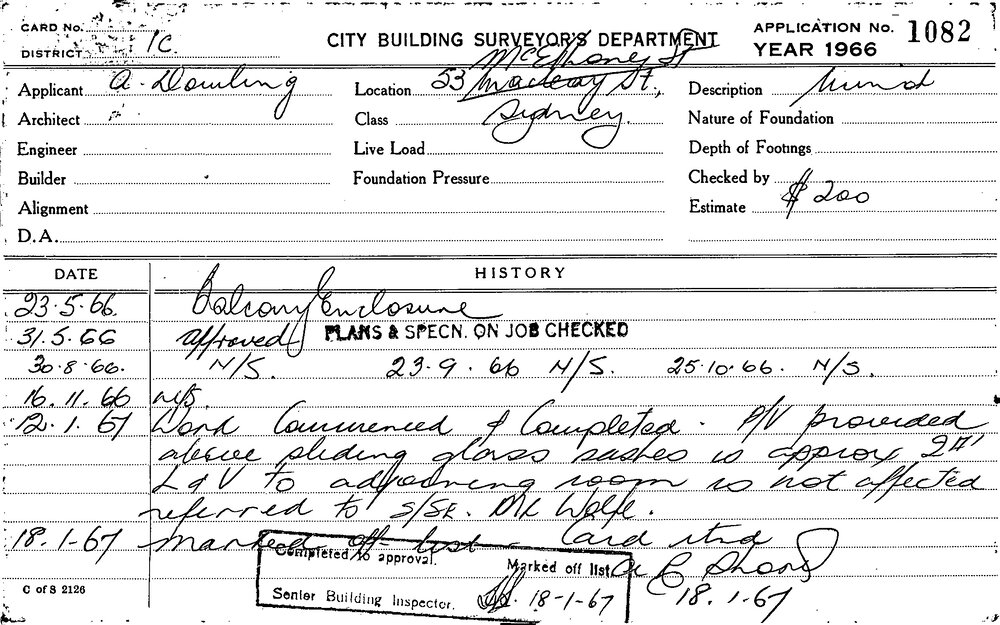 CARD No.
DISTRICT 1C.
CITY BUILDING SURVEYOR'S DEPARTMENT
APPLICATION No. 1082
YEAR 1966
Applicant A. Dowling
Location 53 Macleay St., McElhone St
Sydney.
Description Minid
Architect
Class
Nature of Foundation
Engineer
Live Load
Depth of Footings
Builder
Foundation Pressure
Checked by
Alignment
Estimate $200
D.A.
DATE HISTORY
23.5.66. Balcony Enclosure
31.5.66 Approved PLANS & SPECN. ON JOB CHECKED
30.8.66. N/S. 23.9.66 N/S. 25.10.66. N/S.
16.11.66 N/S.
12.1.67 Work Commenced & Completed. P/V provided
above sliding glass sashes is approx 2□'
L & V to adjoining room is not affected
referred to S/SR. Mr Wolfe.
18.1-67 Marked off list - Card rtnd
Completed to approval.
Marked off list
Senior Building Inspector.
18-1-67
18.1.67
C of S 2126